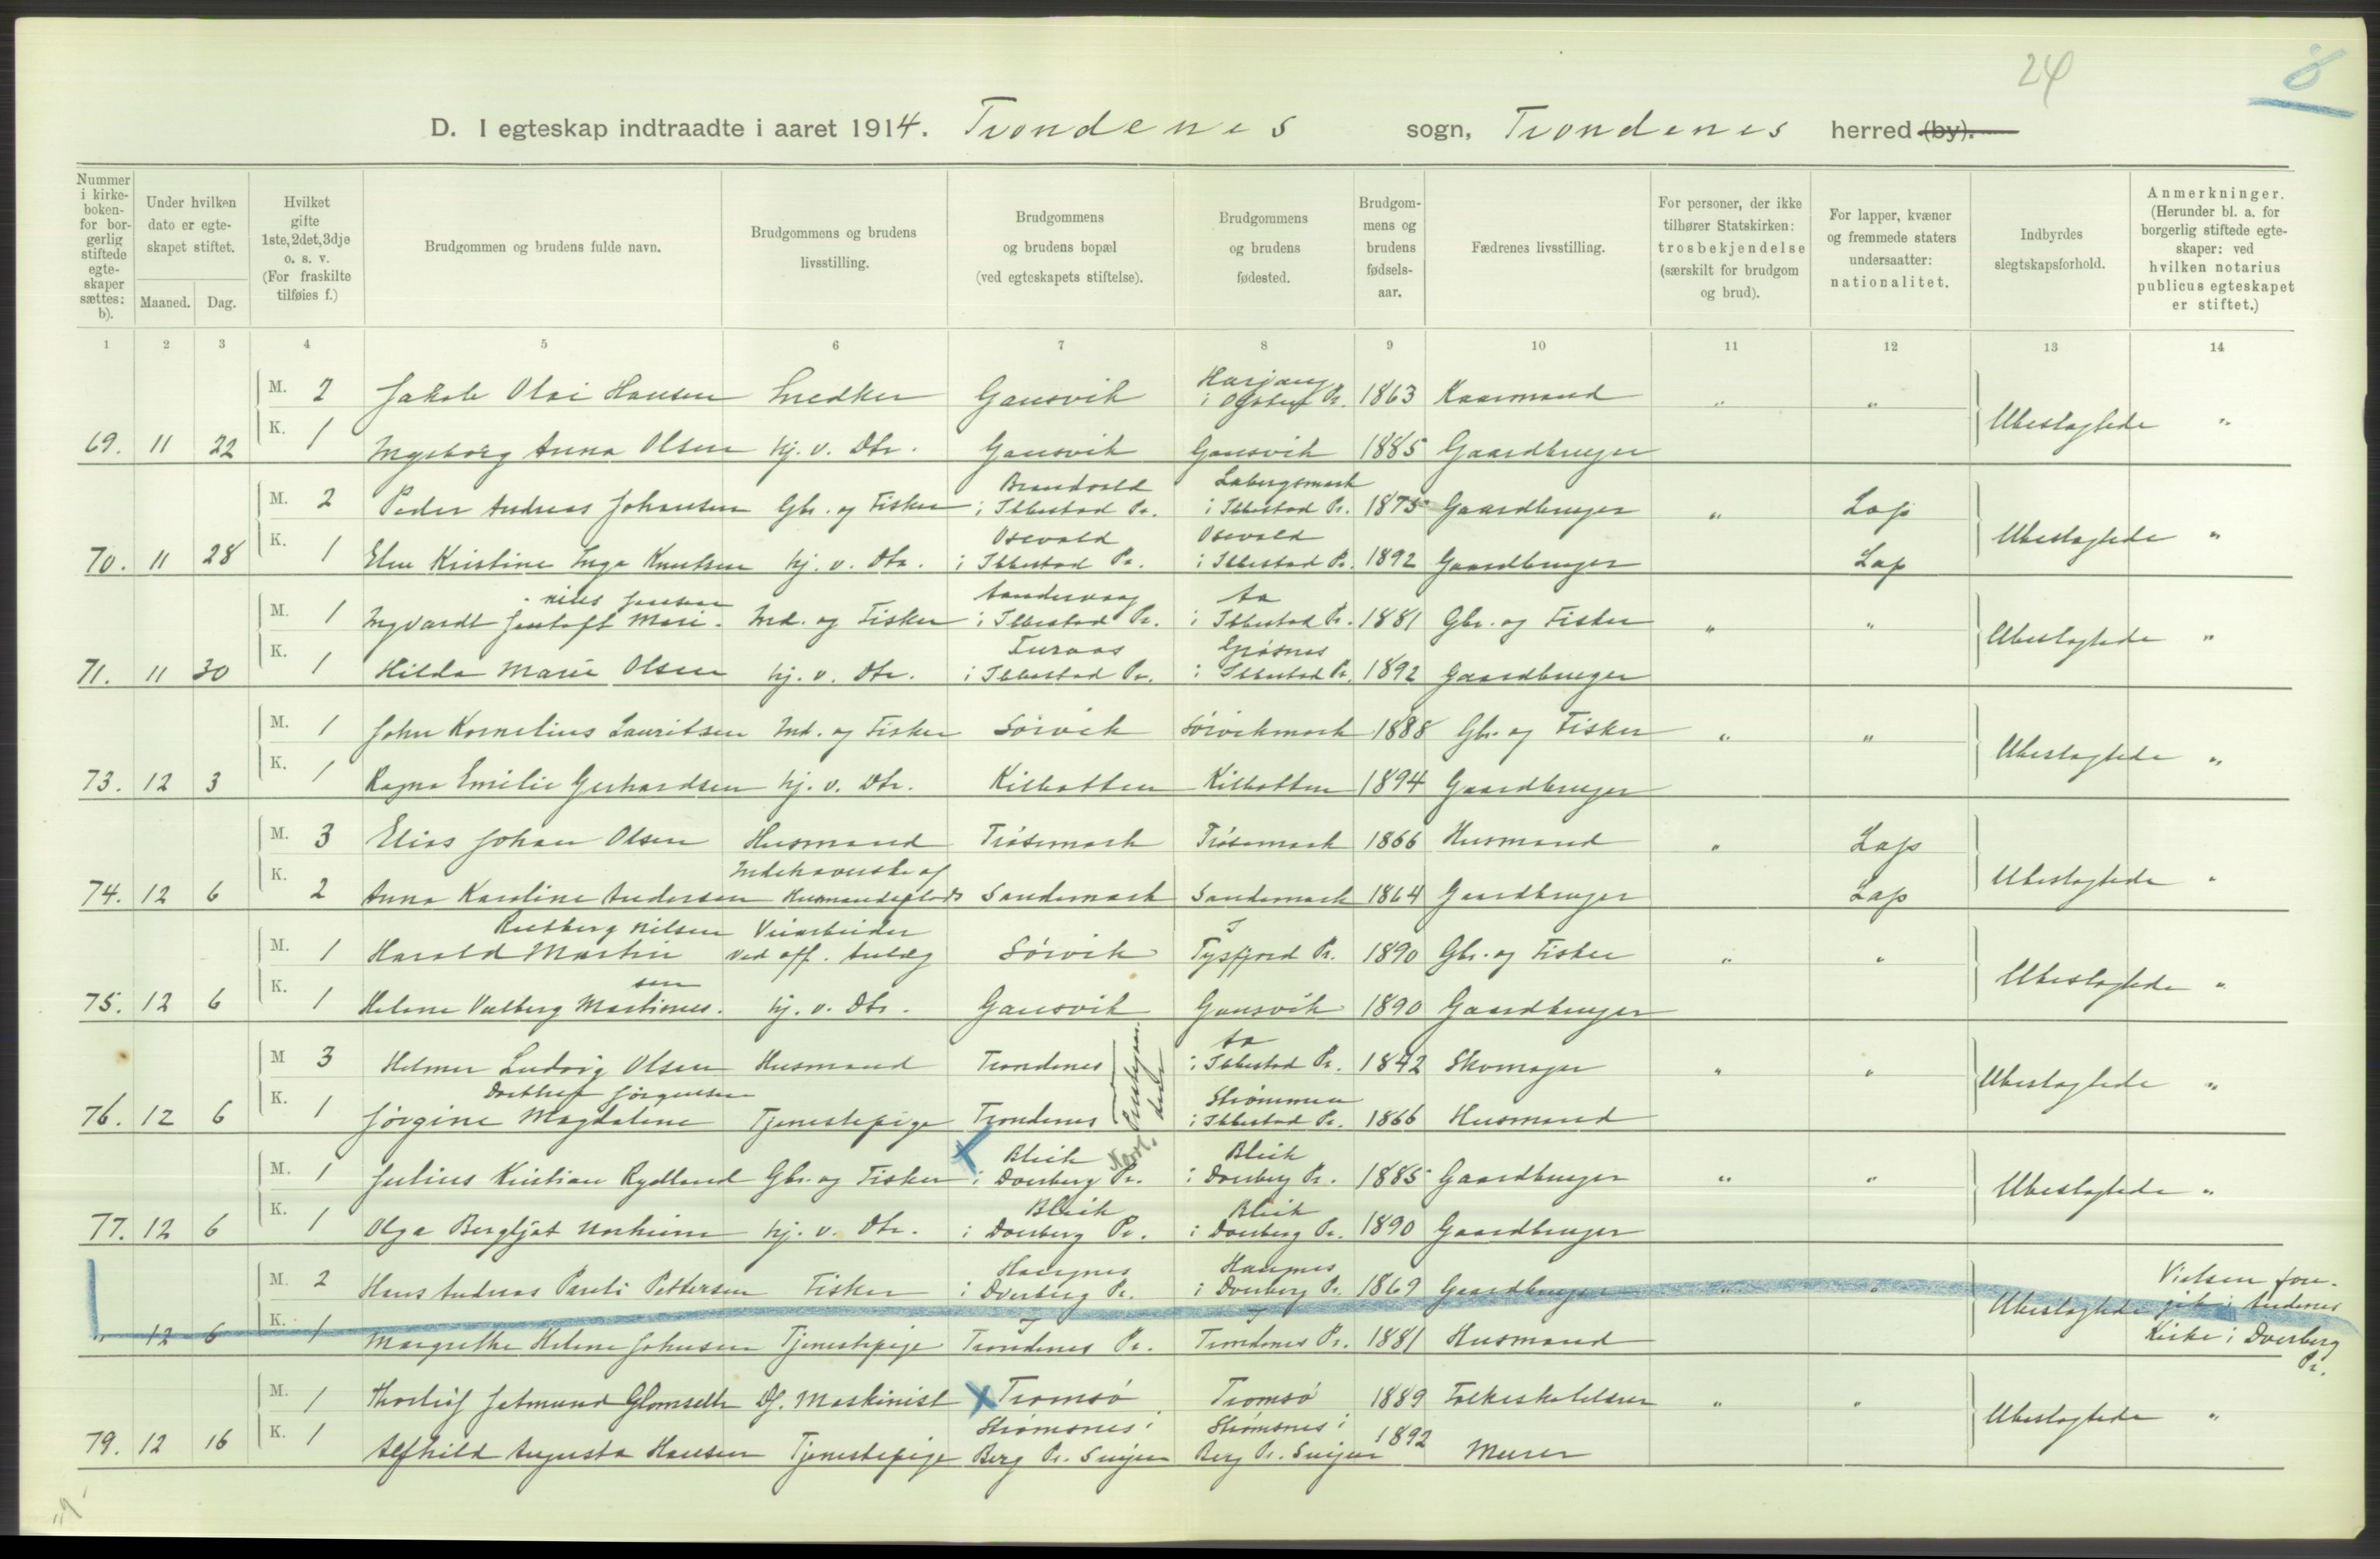 24
8
D. I egteskap indtraadte i aaret 1914. Trondenes sogn, Trondenes herred (by).
Nummer i kirkeboken for borgerlig stiftede egteskaper sættes: b).
Under hvilken dato er egteskapet stiftet.
Maaned. Dag.
Hvilket gifte 1ste, 2det, 3dje o. s. v. (For fraskilte tilføies f.)
Brudgommen og brudens fulde navn.
Brudgommens og brudens livsstilling.
Brudgommens og brudens bopæl (ved egteskapets stiftelse).
Brudgommens og brudens fødested.
Brudgommens og brudens fødselsaar.
Fædrenes livsstilling.
For personer, der ikke tilhører Statskirken: trosbekjendelse (særskilt for brudgom og brud).
For lapper, kvæner og fremmede staters undersaatter: nationalitet.
Indbyrdes slegtskapsforhold.
Anmerkninger. (Herunder bl. a. for borgerlig stiftede egteskaper: ved hvilken notarius publicus egteskapet er stiftet.)
1 2 3 4 5 6 7 8 9 10 11 12 13 14
M. 2 Jakob Olai Hansen Snedker Gansvik i Pr. 1863 Kaarmand " " Ubeslegtede "
69. 11 22 K. 1 Ingeborg Anna Olsen hj. v. Dtr. Gansvik Gansvik 1885 Gaardbruger
M. 2 Peder Andreas Johansen Gbr. og Fisker Brandvold i Ibbestad Pr. Labergsmark i Ibbestad Pr. 1875 Gaardbruger " Lap Ubeslegtede "
70. 11 28 K. 1 Elen Kristine Inga Knutsen hj. v. Dtr. Osevold i Ibbestad Pr. Osevold i Ibbestad Pr. 1892 Gaardbruger Lap
M. 1 Ingvardt Jentoft Mari-nius Jensen Ind. og Fisker Sandsvaag i Ibbestad Pr. Aa i Ibbestad Pr. 1881 Gbr. og Fisker " " Ubeslegtede "
71. 11 30 K. 1 Hilda Marie Olsen hj. v. Dtr. Furaas i Ibbestad Pr. Grøsnes i Ibbestad Pr. 1892 Gaardbruger
M. 1 John Kornelius Lauritsen Ind. og Fisker Sørvik Sørvikmark 1888 Gbr. og Fisker " " Ubeslegtede "
73. 12 3 K. 1 Ragna Emilie Gerhardsen hj. v. Dtr. Kilbotten Kilbotten 1894 Gaardbruger
M. 3 Elias Johan Olsen Husmand Trøsemark Trøsemark 1866 Husmand " Lap Ubeslegtede "
74. 12 6 K. 2 Anna Karoline Andersen Indehaverske af Husmandsplads Sandemark Sandemark 1864 Gaardbruger Lap
M. 1 Harald Martin Rustberg Nilsen Veiarbeider ved off. Anlæg Sørvik i Tysfjord Pr. 1890 Gbr. og Fisker " " Ubeslegtede "
75. 12 6 K. 1 Helene Valberg Martinussen hj. v. Dtr. Gansvik Gansvik 1890 Gaardbruger
M 3 Helmer Ludvig Olsen Husmand Trondenes i Aa Ibbestad Pr. 1842 Skomager " " Ubeslegtede "
76. 12 6 K. 1 Jørgine Magdalene Dorthea Jørgensen Tjenestepige Trondenes Strømmen i Ibbestad Pr. 1866 Husmand
M. 1 Julius Kristian Rydland Gbr. og Fisker X Bleik i Dverberg Pr. Bleik i Dverberg Pr. 1885 Gaardbruger " " Ubeslegtede "
77. 12 6 K. 1 Olga Bergljot Norheim hj. v. Dtr. Bleik i Dverberg Pr. Bleik i Dverberg Pr. 1890 Gaardbruger
M. 2 Hans Andreas Pareli Pettersen Fisker Haugnes i Dverberg Pr. Haugnes i Dverberg Pr. 1869 Gaardbruger " " Ubeslegtede Vielsen foregik i Andenes Kirke i Dverberg Pr.
" 12 6 K. 1 Margrethe Helene Johnsen Tjenestepige i Trondenes Pr. i Trondenes Pr. 1881 Husmand
M. 1 Thorleif Jetmund Glomseth Df. Maskinist X Tromsø Tromsø 1889 Folkeskolelærer " " Ubeslegtede "
79. 12 16 K. 1 Alfhild Augusta Hansen Tjenestepige Strømsnes i Berg Pr. Senjen Strømsnes i Berg Pr. Senjen 1892 Murer